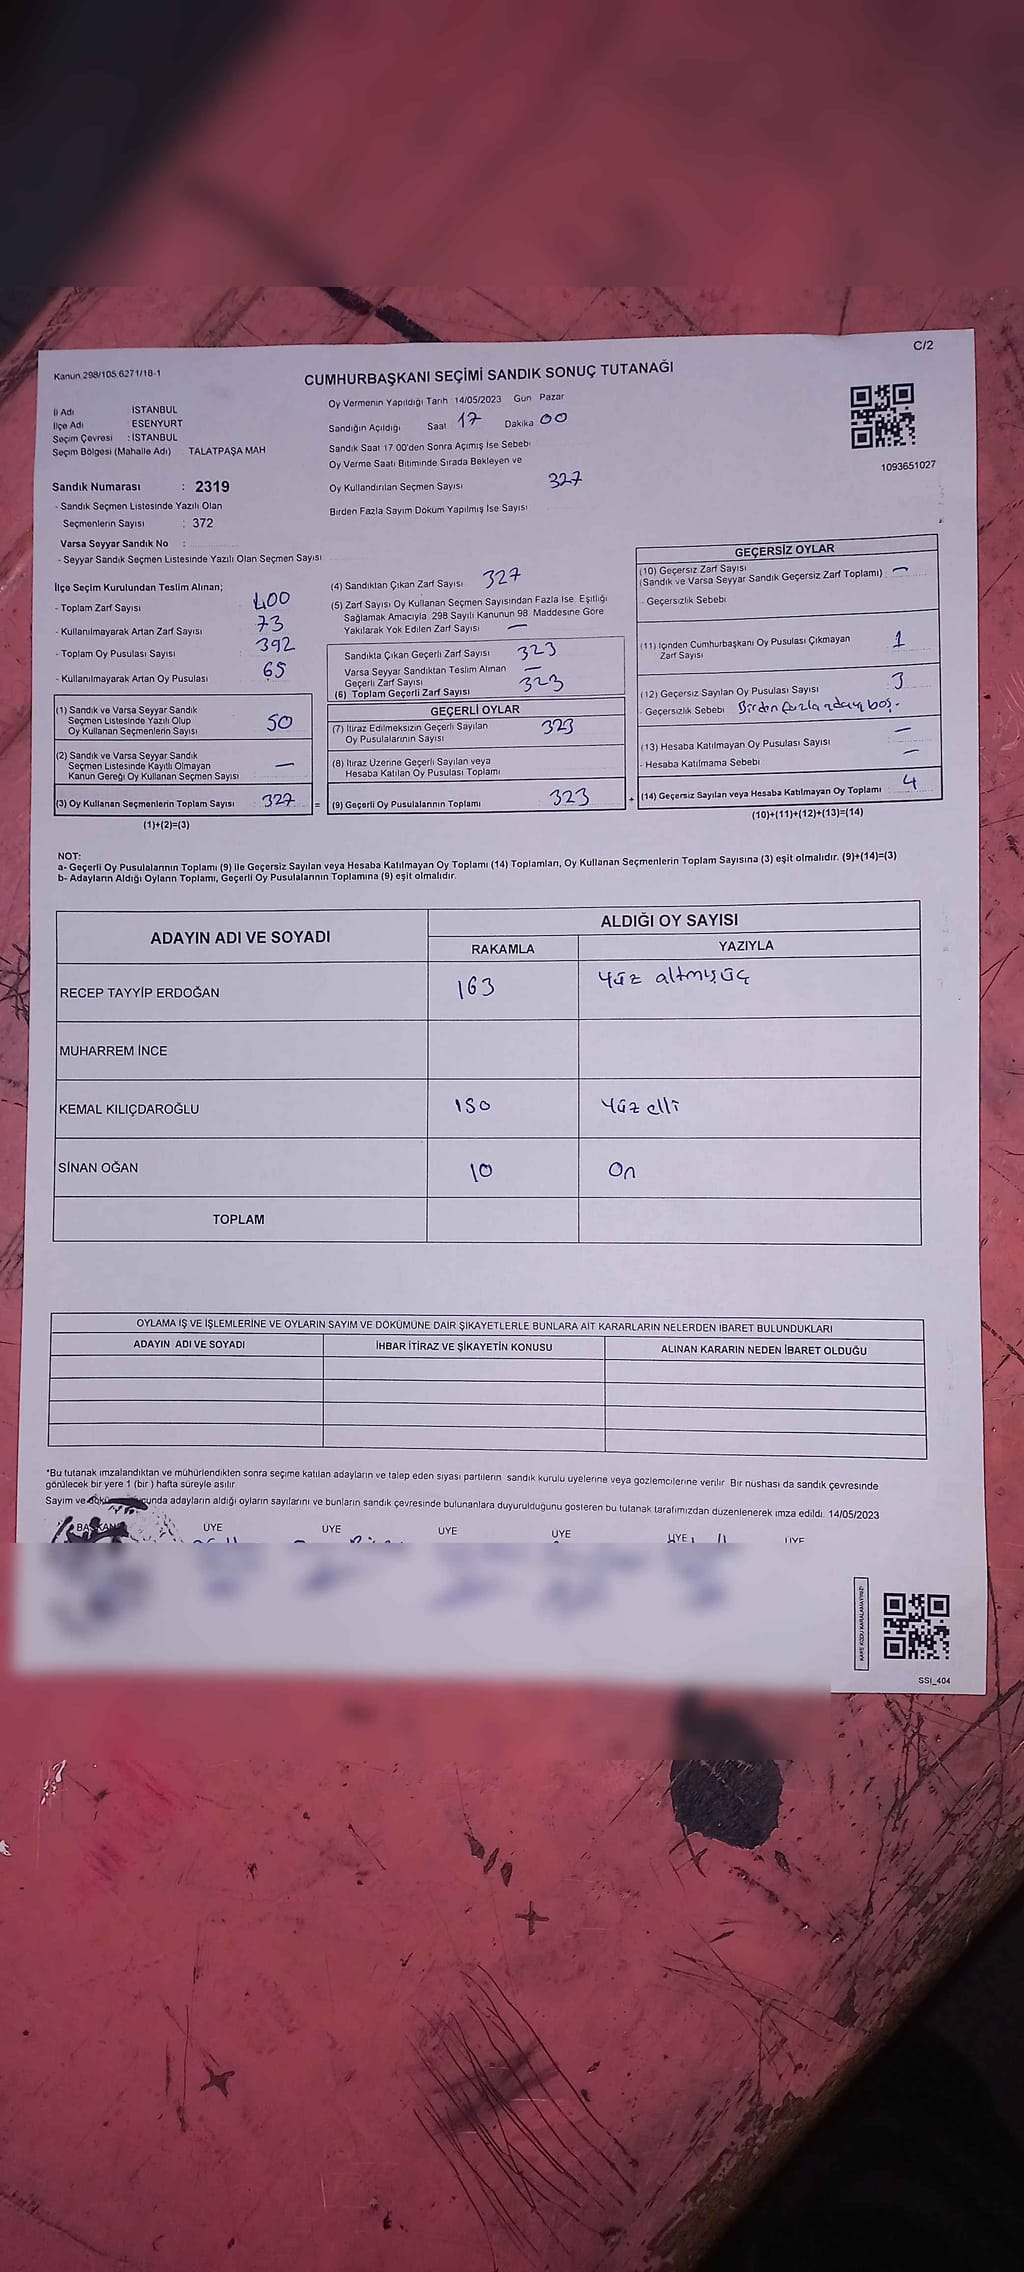 C/2
Kanun 298/105 6271/18-1
CUMHURBAŞKANI SEÇİMİ SANDIK SONUÇ TUTANAĞI
İl Adı İSTANBUL
İlçe Adı ESENYURT
Seçim Çevresi : İSTANBUL
Seçim Bölgesi (Mahalle Adı) TALATPAŞA MAH
Sandık Numarası : 2319
- Sandık Seçmen Listesinde Yazılı Olan
Seçmenlerin Sayısı : 372
Varsa Seyyar Sandık No :
- Seyyar Sandık Seçmen Listesinde Yazılı Olan Seçmen Sayısı
Oy Vermenin Yapıldığı Tarih 14/05/2023 Gün Pazar
Sandığın Açıldığı Saat 17 Dakika 00
Sandık Saat 17 00'den Sonra Açımış İse Sebebi
Oy Verme Saati Bitiminde Sırada Bekleyen ve
Oy Kullandırılan Seçmen Sayısı 327
Birden Fazla Sayım Döküm Yapılmış İse Sayısı
1093651027
İlçe Seçim Kurulundan Teslim Alınan;
- Toplam Zarf Sayısı 400
- Kullanılmayarak Artan Zarf Sayısı 73
- Toplam Oy Pusulası Sayısı 392
- Kullanılmayarak Artan Oy Pusulası 65
(1) Sandık ve Varsa Seyyar Sandık
Seçmen Listesinde Yazılı Olup
Oy Kullanan Seçmenlerin Sayısı 50
(2) Sandık ve Varsa Seyyar Sandık
Seçmen Listesinde Kayıtlı Olmayan
Kanun Gereği Oy Kullanan Seçmen Sayısı —
(3) Oy Kullanan Seçmenlerin Toplam Sayısı 327 =
(1)+(2)=(3)
(4) Sandıktan Çıkan Zarf Sayısı 327
(5) Zarf Sayısı Oy Kullanan Seçmen Sayısından Fazla İse, Eşitliği
Sağlamak Amacıyla 298 Sayılı Kanunun 98 Maddesine Göre
Yakılarak Yok Edilen Zarf Sayısı —
Sandıkta Çıkan Geçerli Zarf Sayısı 323
Varsa Seyyar Sandıktan Teslim Alınan
Geçerli Zarf Sayısı —
(6) Toplam Geçerli Zarf Sayısı 323
GEÇERLİ OYLAR
(7) İtiraz Edilmeksizin Geçerli Sayılan
Oy Pusulalarının Sayısı 323
(8) İtiraz Üzerine Geçerli Sayılan veya
Hesaba Katılan Oy Pusulası Toplamı
(9) Geçerli Oy Pusulalarının Toplamı 323 +
GEÇERSİZ OYLAR
(10) Geçersiz Zarf Sayısı
(Sandık ve Varsa Seyyar Sandık Geçersiz Zarf Toplamı) —
- Geçersizlik Sebebi
(11) İçinden Cumhurbaşkanı Oy Pusulası Çıkmayan
Zarf Sayısı 1
(12) Geçersiz Sayılan Oy Pusulası Sayısı 3
- Geçersizlik Sebebi Birden fazla aday, boş.
(13) Hesaba Katılmayan Oy Pusulası Sayısı —
- Hesaba Katılmama Sebebi —
(14) Geçersiz Sayılan veya Hesaba Katılmayan Oy Toplamı 4
(10)+(11)+(12)+(13)=(14)
NOT:
a- Geçerli Oy Pusulalarının Toplamı (9) ile Geçersiz Sayılan veya Hesaba Katılmayan Oy Toplamı (14) Toplamları, Oy Kullanan Seçmenlerin Toplam Sayısına (3) eşit olmalıdır. (9)+(14)=(3)
b- Adayların Aldığı Oyların Toplamı, Geçerli Oy Pusulalarının Toplamına (9) eşit olmalıdır.
ADAYIN ADI VE SOYADI ALDIĞI OY SAYISI
RAKAMLA YAZIYLA
RECEP TAYYİP ERDOĞAN 163 Yüz altmış üç
MUHARREM İNCE
KEMAL KILIÇDAROĞLU 150 Yüz elli
SİNAN OĞAN 10 On
TOPLAM
OYLAMA İŞ VE İŞLEMLERİNE VE OYLARIN SAYIM VE DÖKÜMÜNE DAİR ŞİKAYETLERLE BUNLARA AİT KARARLARIN NELERDEN İBARET BULUNDUKLARI
ADAYIN ADI VE SOYADI İHBAR İTİRAZ VE ŞİKAYETİN KONUSU ALINAN KARARIN NEDEN İBARET OLDUĞU
*Bu tutanak imzalandıktan ve mühürlendikten sonra seçime katılan adayların ve talep eden siyasi partilerin sandık kurulu üyelerine veya gözlemcilerine verilir. Bir nüshası da sandık çevresinde
görülecek bir yere 1 (bir) hafta süreyle asılır
Sayım ve adayların aldığı oyların sayılarını ve bunların sandık çevresinde bulunanlara duyurulduğunu gösteren bu tutanak tarafımızdan düzenlenerek imza edildi. 14/05/2023
BAŞKAN ÜYE ÜYE ÜYE ÜYE ÜYE ÜYE
KARE KODU KARALAMAYINIZ!
SSI_404